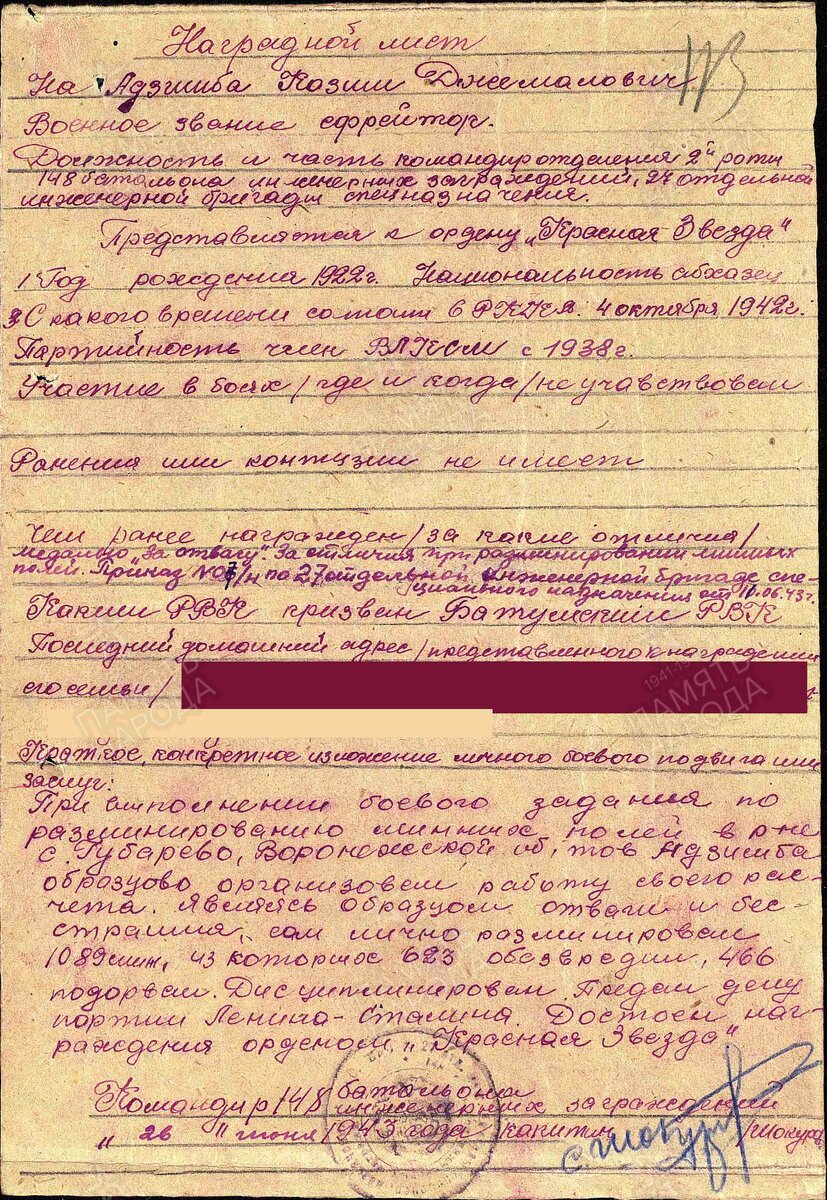 Наградной лист
На Адзинба Козии Джемалович
Военное звание ефрейтор.
Должность и часть командир отделения 2й роты
148 батальона инженерных заграждений, 27 отдельной
инженерной бригады спецназначения.
Представляется к ордену „Красная Звезда"
1 Год рождения 1922 г. Национальность абхазец
3 С какого времени состоит в РККА. 4 октября 1942 г.
Партийность член ВЛКСМ с 1938 г.
Участие в боях /где и когда/ не учавствовал
Ранения или контузии не имеет
Чем ранее награжден /за какие отличия/
медалью „За отвагу". За отличия при разминировании минных
полей. Приказ №07/н по 27 отдельной инженерной бригаде спе-
циального назначения от 10.06.43 г.
Каким РВК призван Батумский РВК
Последний домашний адрес /представленного к награждении
его семьи/
Краткое, конкретное изложение личного боевого подвига или
заслуг:
При выполнении боевого задания по
разминированию минных полей в р-не
с. Губарево, Воронежской об, тов Адзинба
образцово организовал работу своего рас-
чета. Являясь образцом отваги и бес-
страшия, сам лично разминировал
1089 мин, из которых 623 обезвредил, 466
подорвал. Дисциплинирован. Предан делу
партии Ленина-Сталина. Достоин наг-
раждения орденом „Красная Звезда"
Командир 148 батальона
инженерных заграждений
„26" июня 1943 года капитан